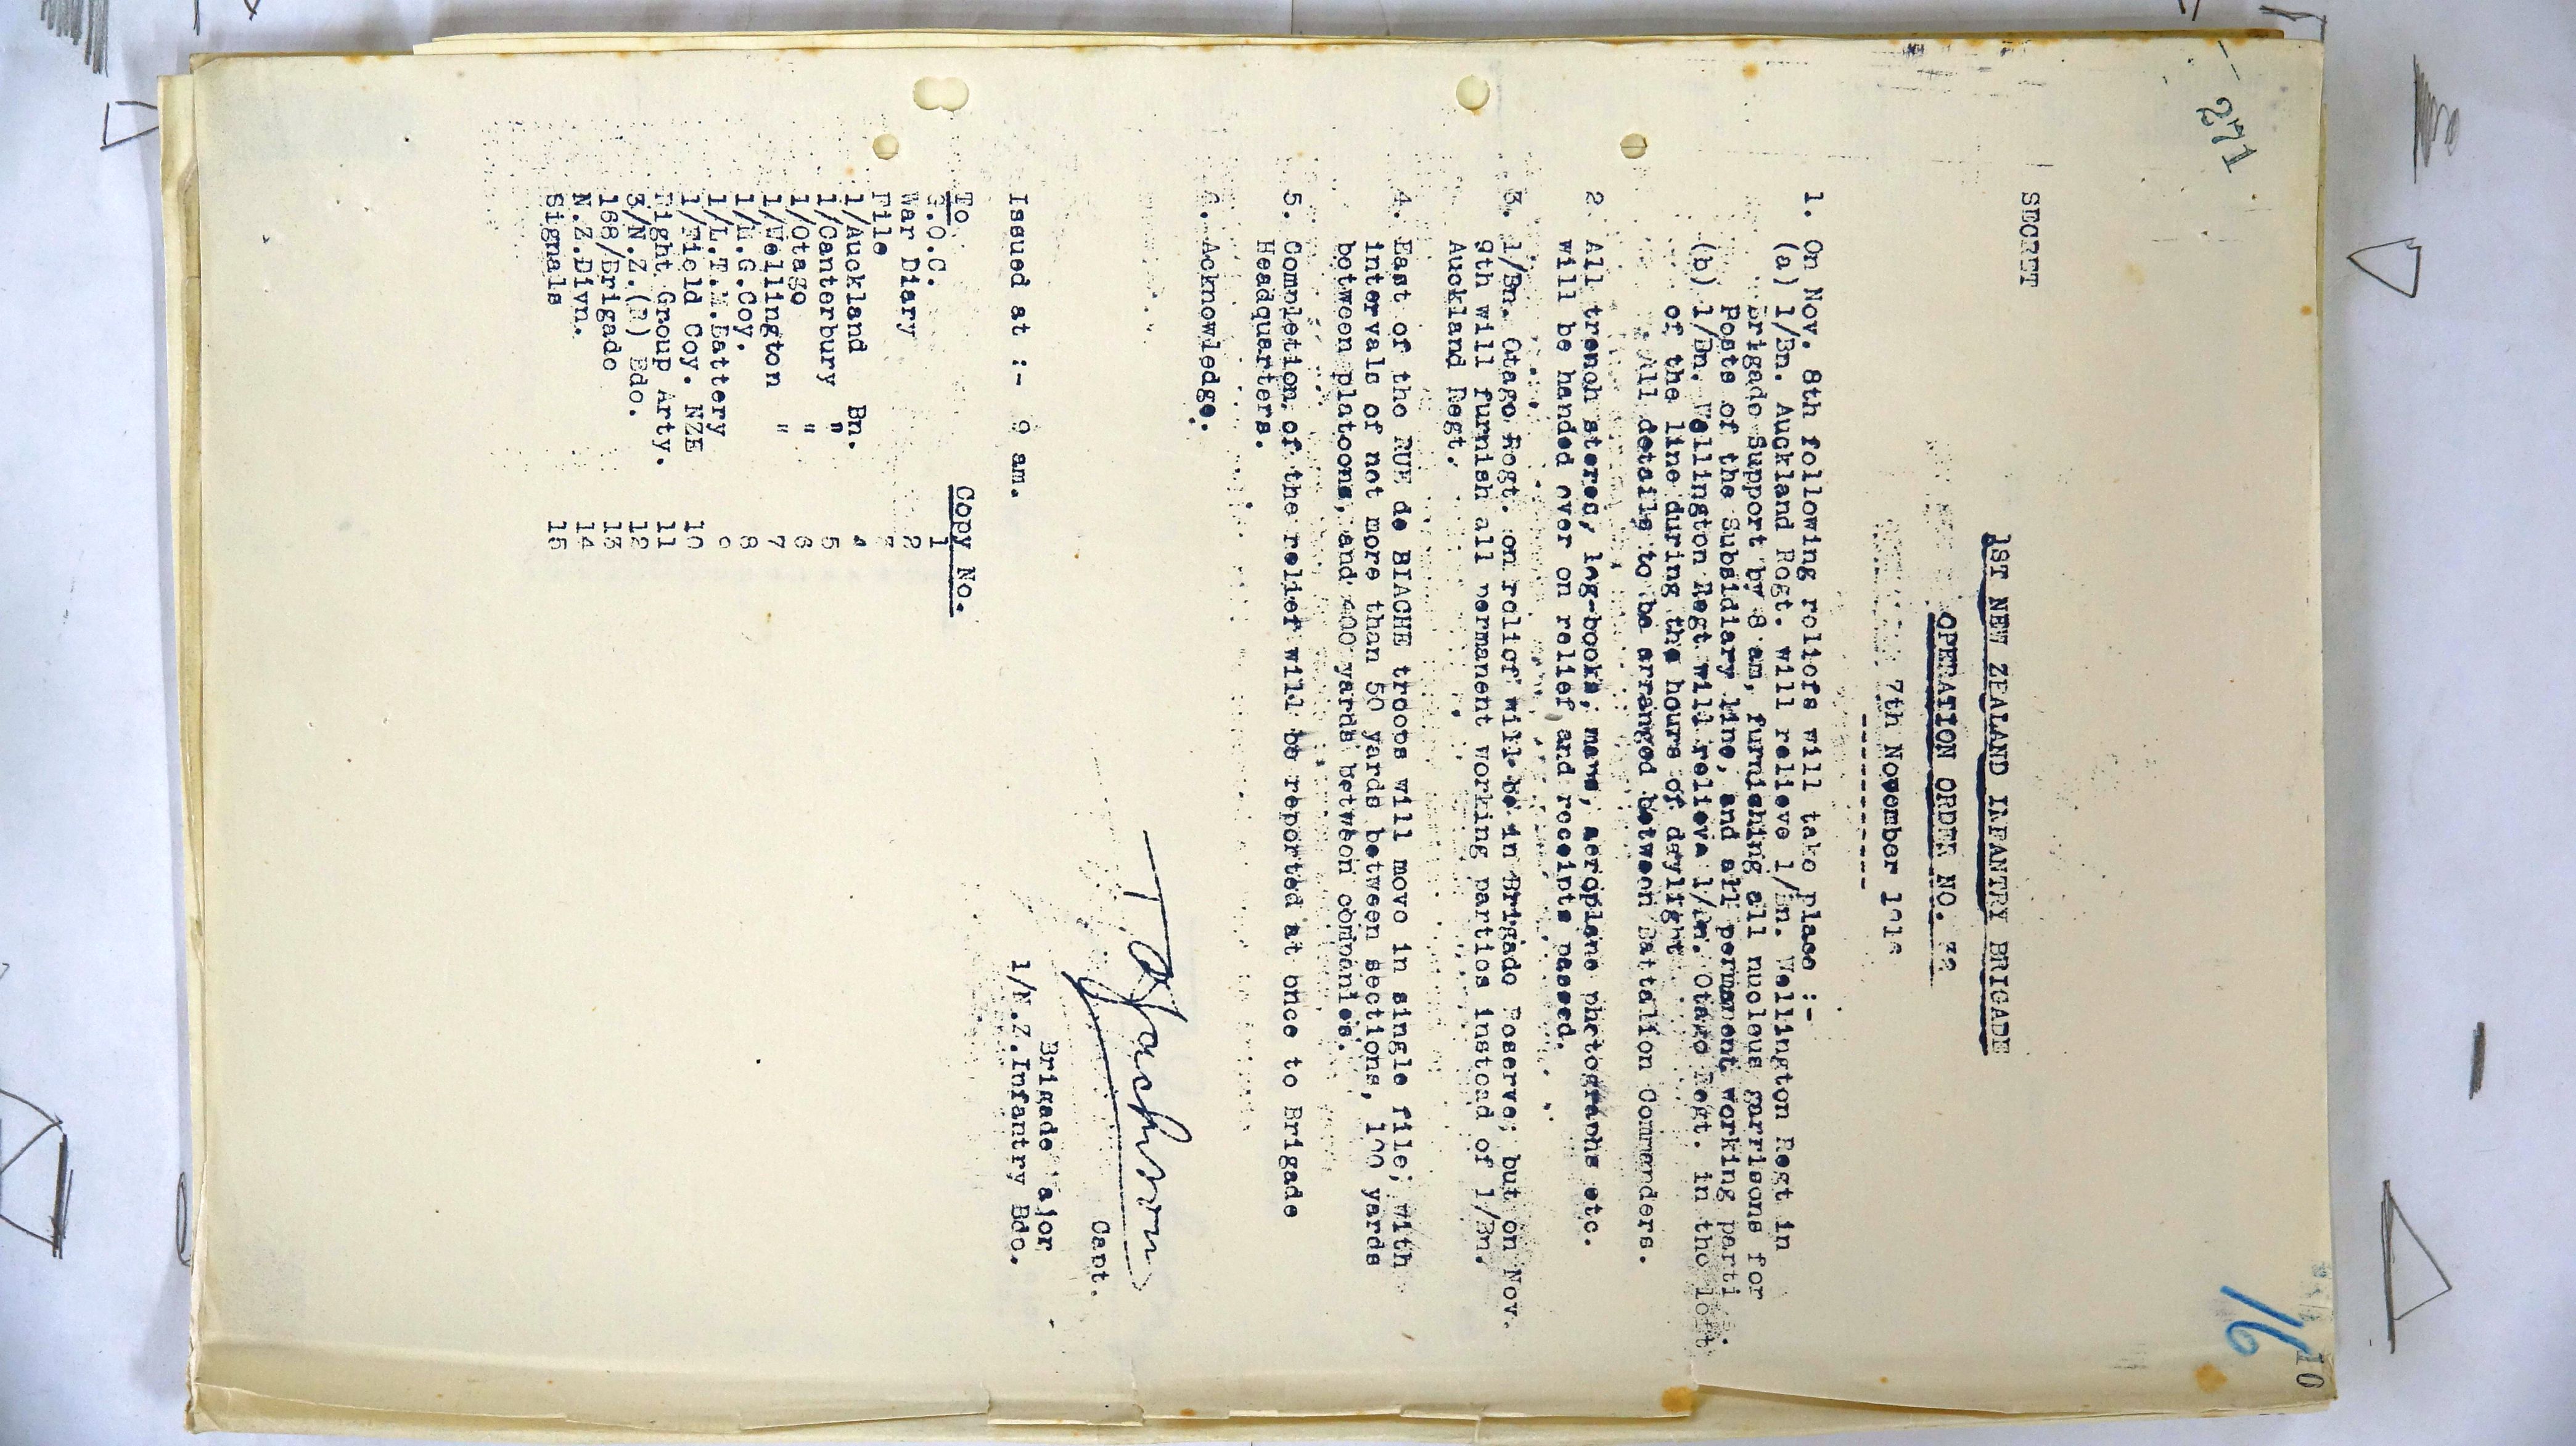 271
16
10
SECRET
1ST NEW ZEALAND INFANTRY BRIGADE
OPERATION ORDER NO. 32
7th November 191
----------
1. On Nov. 8th following reliefs will take place :-
(a) 1/Bn. Auckland Regt. will relieve 1/Bn. Wellington Regt in
Brigade Support by 8 am, furnishing all nucleus garrisons for
Posts of the Subsidiary line, and all permanent working parti
(b) 1/Bn. Wellington Regt will relieve 1/Bn. Otago Regt. in the left
of the line during the hours of daylight
All details to be arranged between Battalion Commanders.
2. All trench stores, log-books, maps, aeroplane photographs etc.
will be handed over on relief and receipts passed.
3. 1/Bn. Otago Regt. on relief will be in Brigade Reserve; but on Nov.
9th will furnish all permanent working parties instead of 1/Bn.
Auckland Regt.
4. East of the RUE de BIACHE troops will move in single file; with
intervals of not more than 50 yards between sections, 100 yards
between platoons, and 400 yards between companies.
5. Completion of the relief will be reported at once to Brigade
Headquarters.
6. Acknowledge.
Capt.
Brigade Major
1/N.Z.Infantry Bde.
Issued at :- 9 am.
To Copy No.
G.O.C. 1
War Diary 2
File 3
1/Auckland Bn. 4
1/Canterbury " 5
1/Otago " 6
1/Wellington " 7
1/M.G.Coy. 8
1/L.T.M.Battery 9
1/Field Coy. NZE 10
Right Group Arty. 11
3/N.Z.(R) Bde. 12
168/Brigade 13
N.Z.Divn. 14
Signals 15